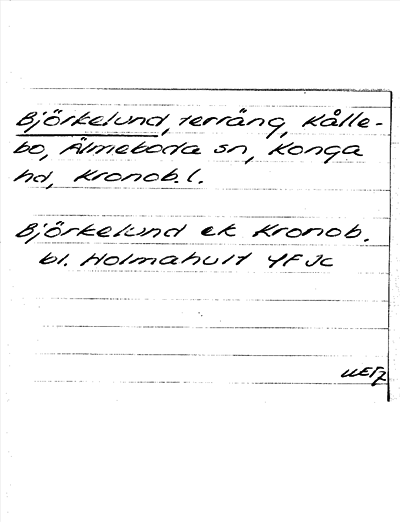 Björkelund, terräng, Kålle-
bo, Älmeboda sn, Konga
hd, Kronob.l.
Björkelund ek Kronob.
bl. Holmahult 4F Jc